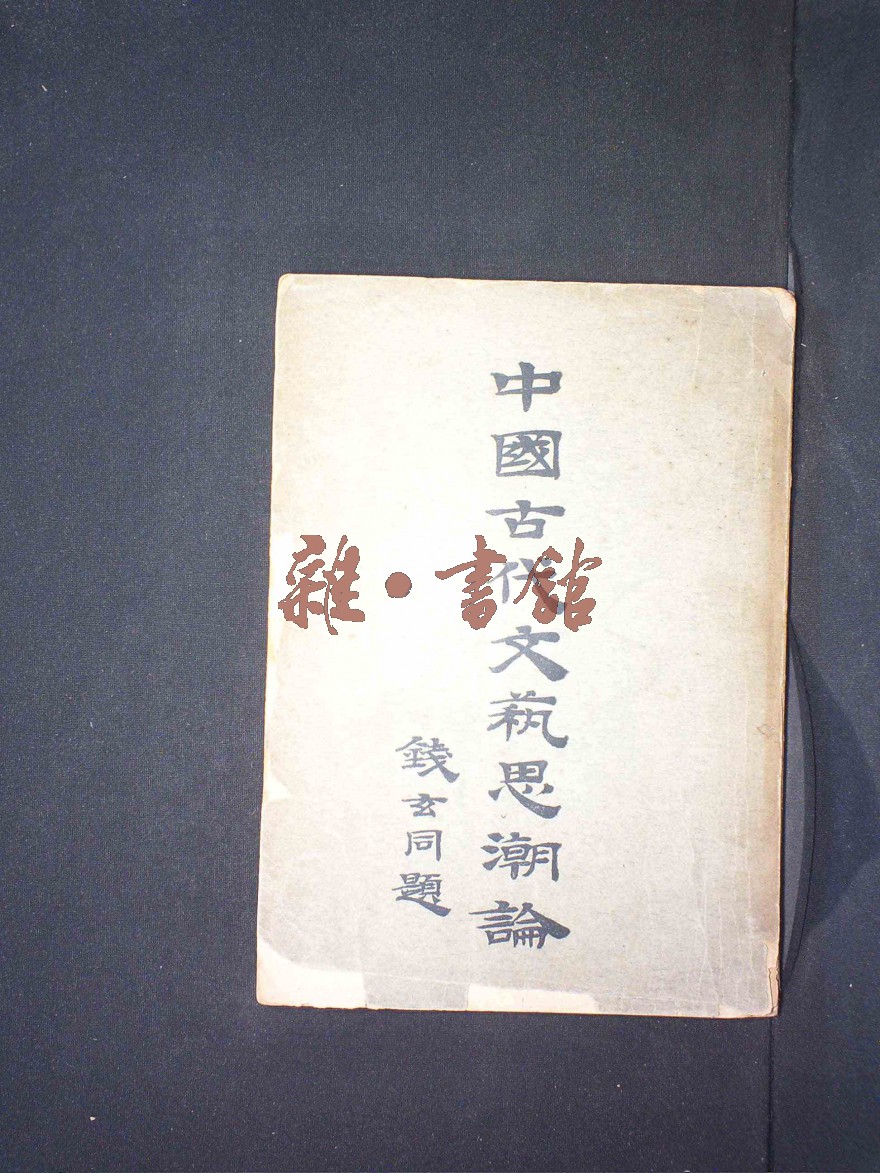 中國古代文蓺思潮論
錢玄同題
雜·書館